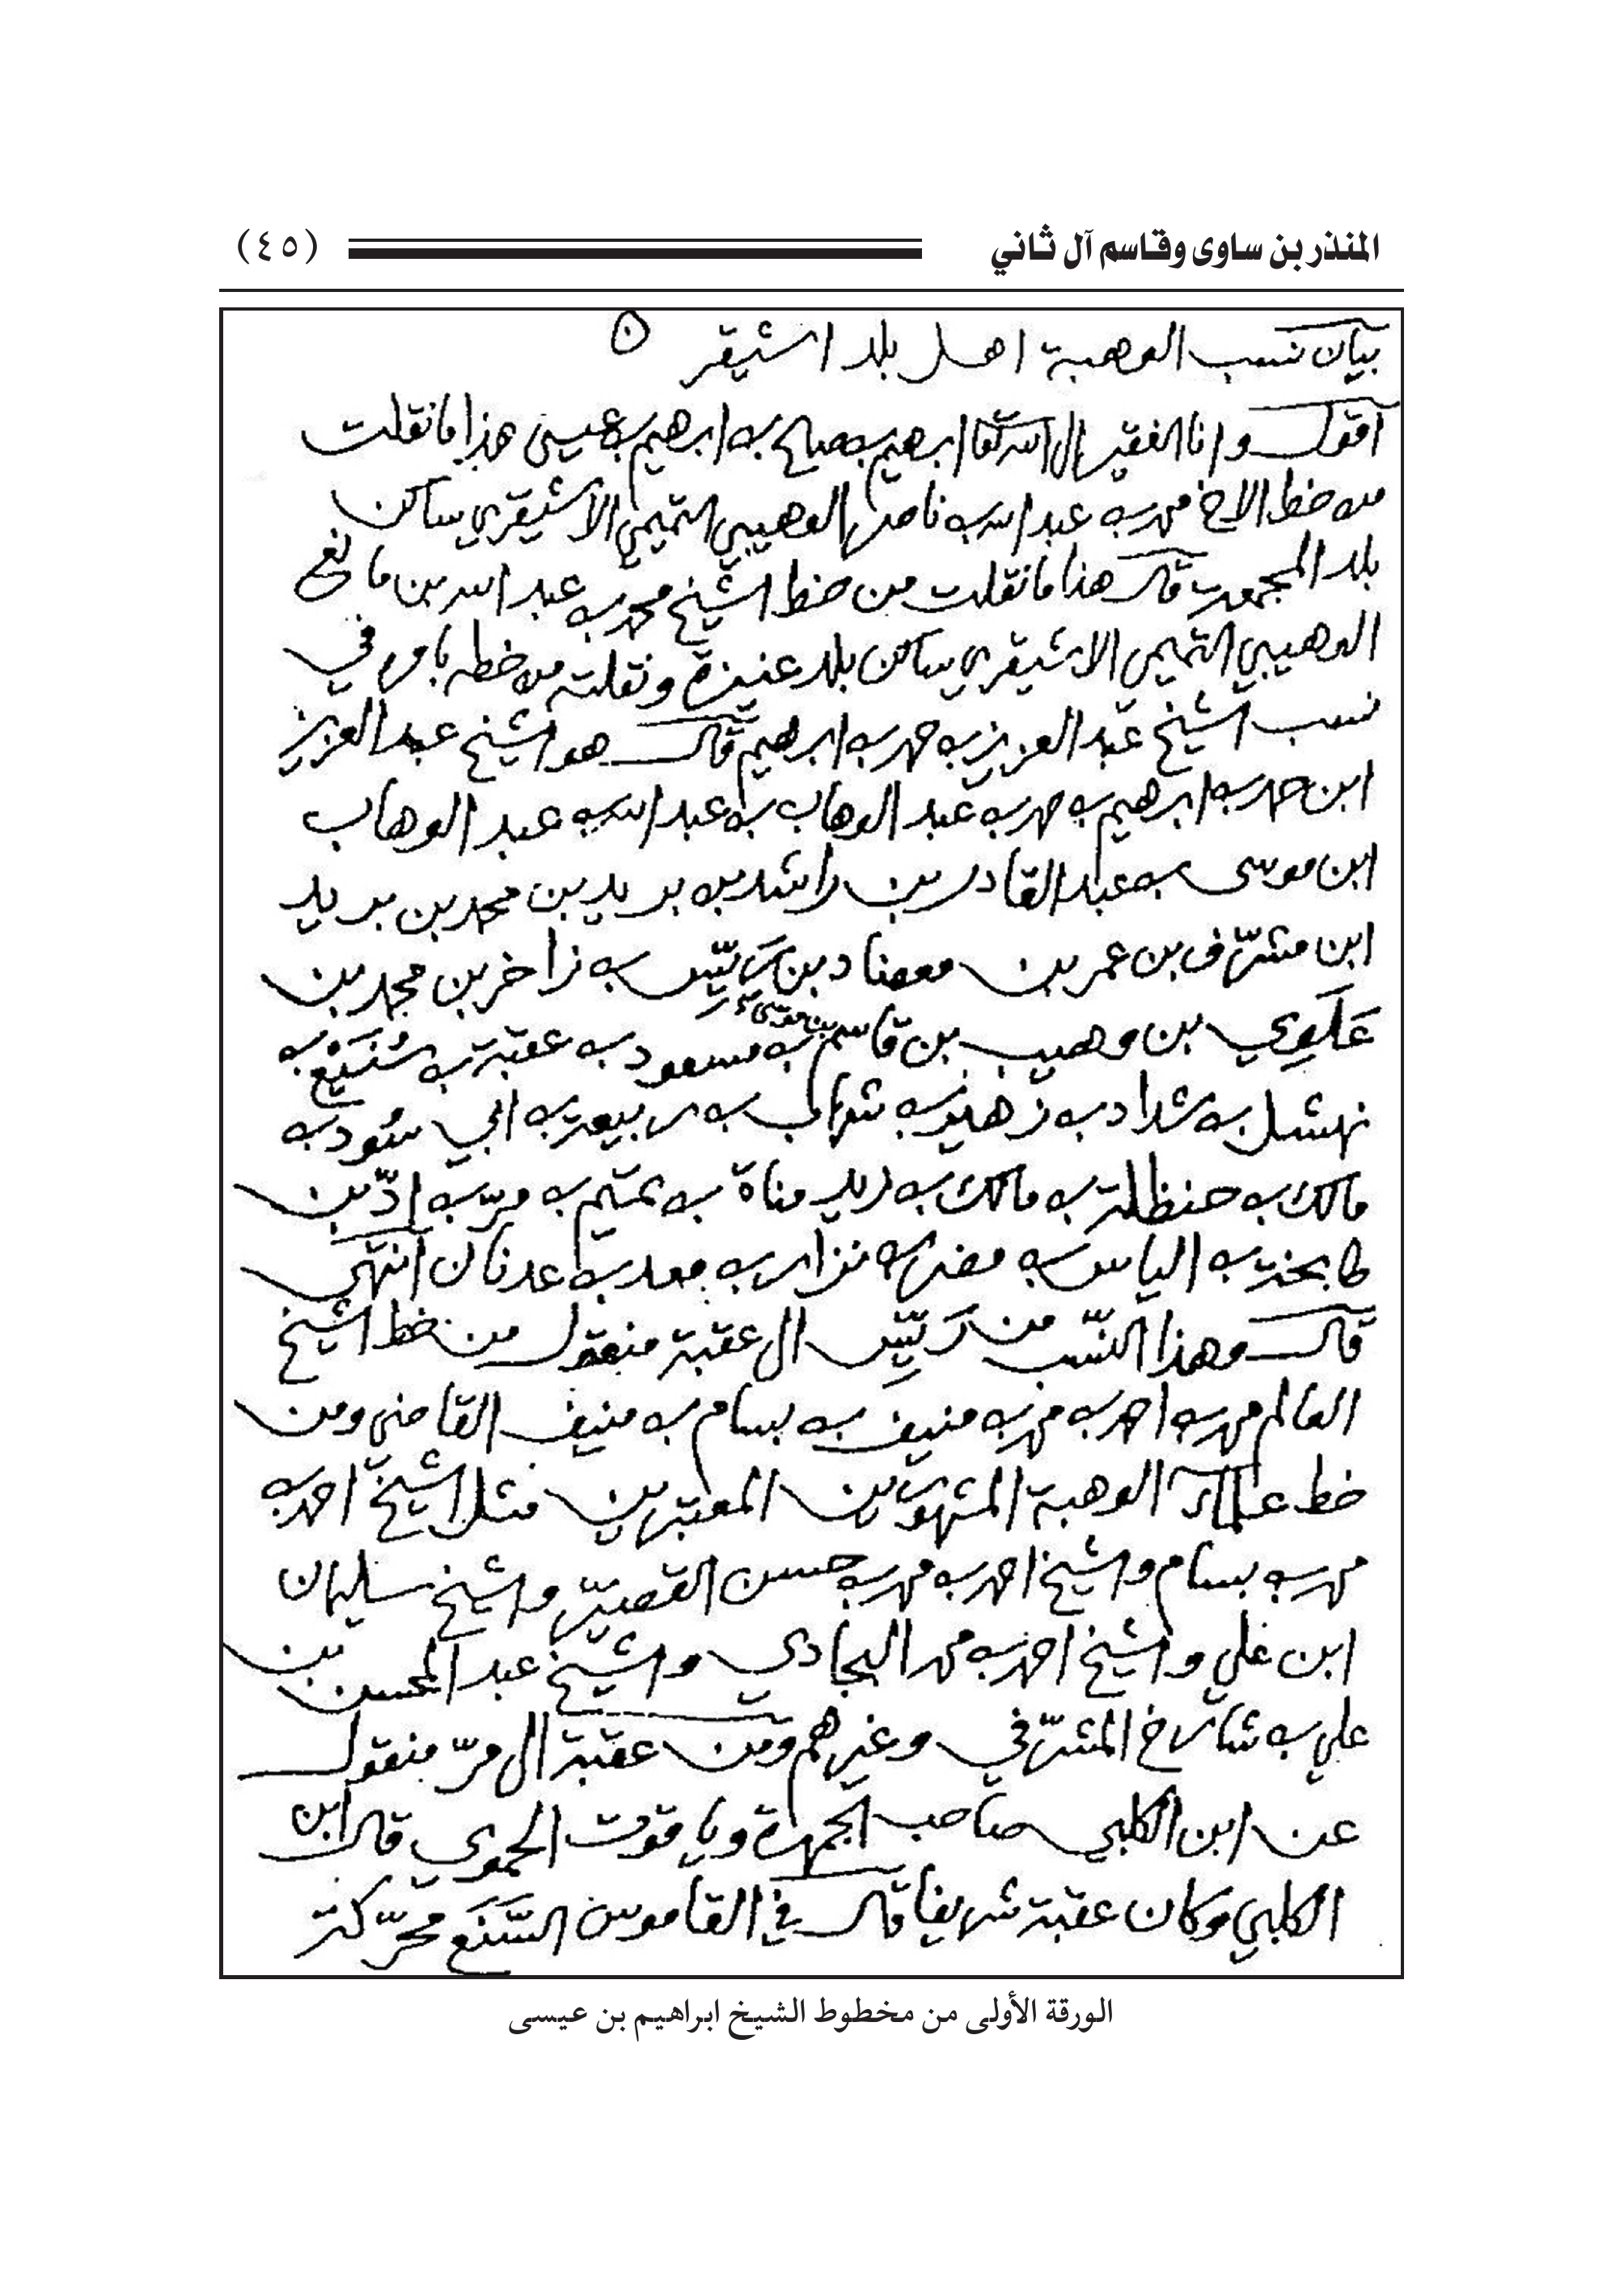 المنذر بن ساوى وقاسم آل ثاني
(٤٥)
بيان نسب الوهبة اهل بلد اشيقر ن
اقول وانا الفقير الى الله تعا ابرهيم بن صالح بن ابرهيم بن عيسى هذا ما نقلت
من خط الاخ محمد بن عبد الله بن ناصر الوهيبي التميمي الاشيقري ساكن
بلد المجمعة قال هذا ما نقلت من خط الشيخ محمد بن عبد الله بن مانع
الوهيبي التميمي الاشيقري ساكن بلد عنيزة ونقلته من خطه بامره في
نسب الشيخ عبد العزيز بن حمد بن ابرهيم قال هو الشيخ عبد العزيز
ابن حمد بن ابرهيم بن حمد بن عبد الوهاب بن عبد الله بن عبد الوهاب
ابن موسى بن عبد القادر بن راشد بن بريد بن محمد بن بريد
ابن مشرّف بن عمر بن معضاد بن ريّس بن زاخر بن محمد بن
عَلَوِي بن وهيب بن قاسم بن موسى بن مسعود بن عقبة بن سُنَيْع بن
نهشل بن شداد بن زهير بن شهاب بن ربيعة بن ابي سُود بن
مالك بن حنظلة بن مالك بن زيد مناة بن تميم بن مرّ بن ادّ بن
طابخة بن الياس بن مضر بن نزار بن معد بن عدنان انتهى
قال وهذا النّسب من رَيّس الى عقبة منقول من خط الشيخ
العالم محمد بن احمد بن محمد بن منيف بن بسام بن منيف القاضي ومن
خط علماء الوهبة المشهورين المعتبرين مثل الشيخ احمد بن
محمد بن بسام والشيخ احمد بن محمد بن حسن القصيّر والشيخ سليمان
ابن علي والشيخ احمد بن محمد البجادي والشيخ عبد المحسن بن
علي بن شارخ المشرّفي وغيرهم ومن عقبة الى مرّ منقول
عن ابن الكلبي صاحب الجمهرة وياقوت الحموي قال ابن
الكلبي وكان عقبة شريفا قال في القاموس السَّنَع محرّكة
الورقة الأولى من مخطوط الشيخ ابراهيم بن عيسى